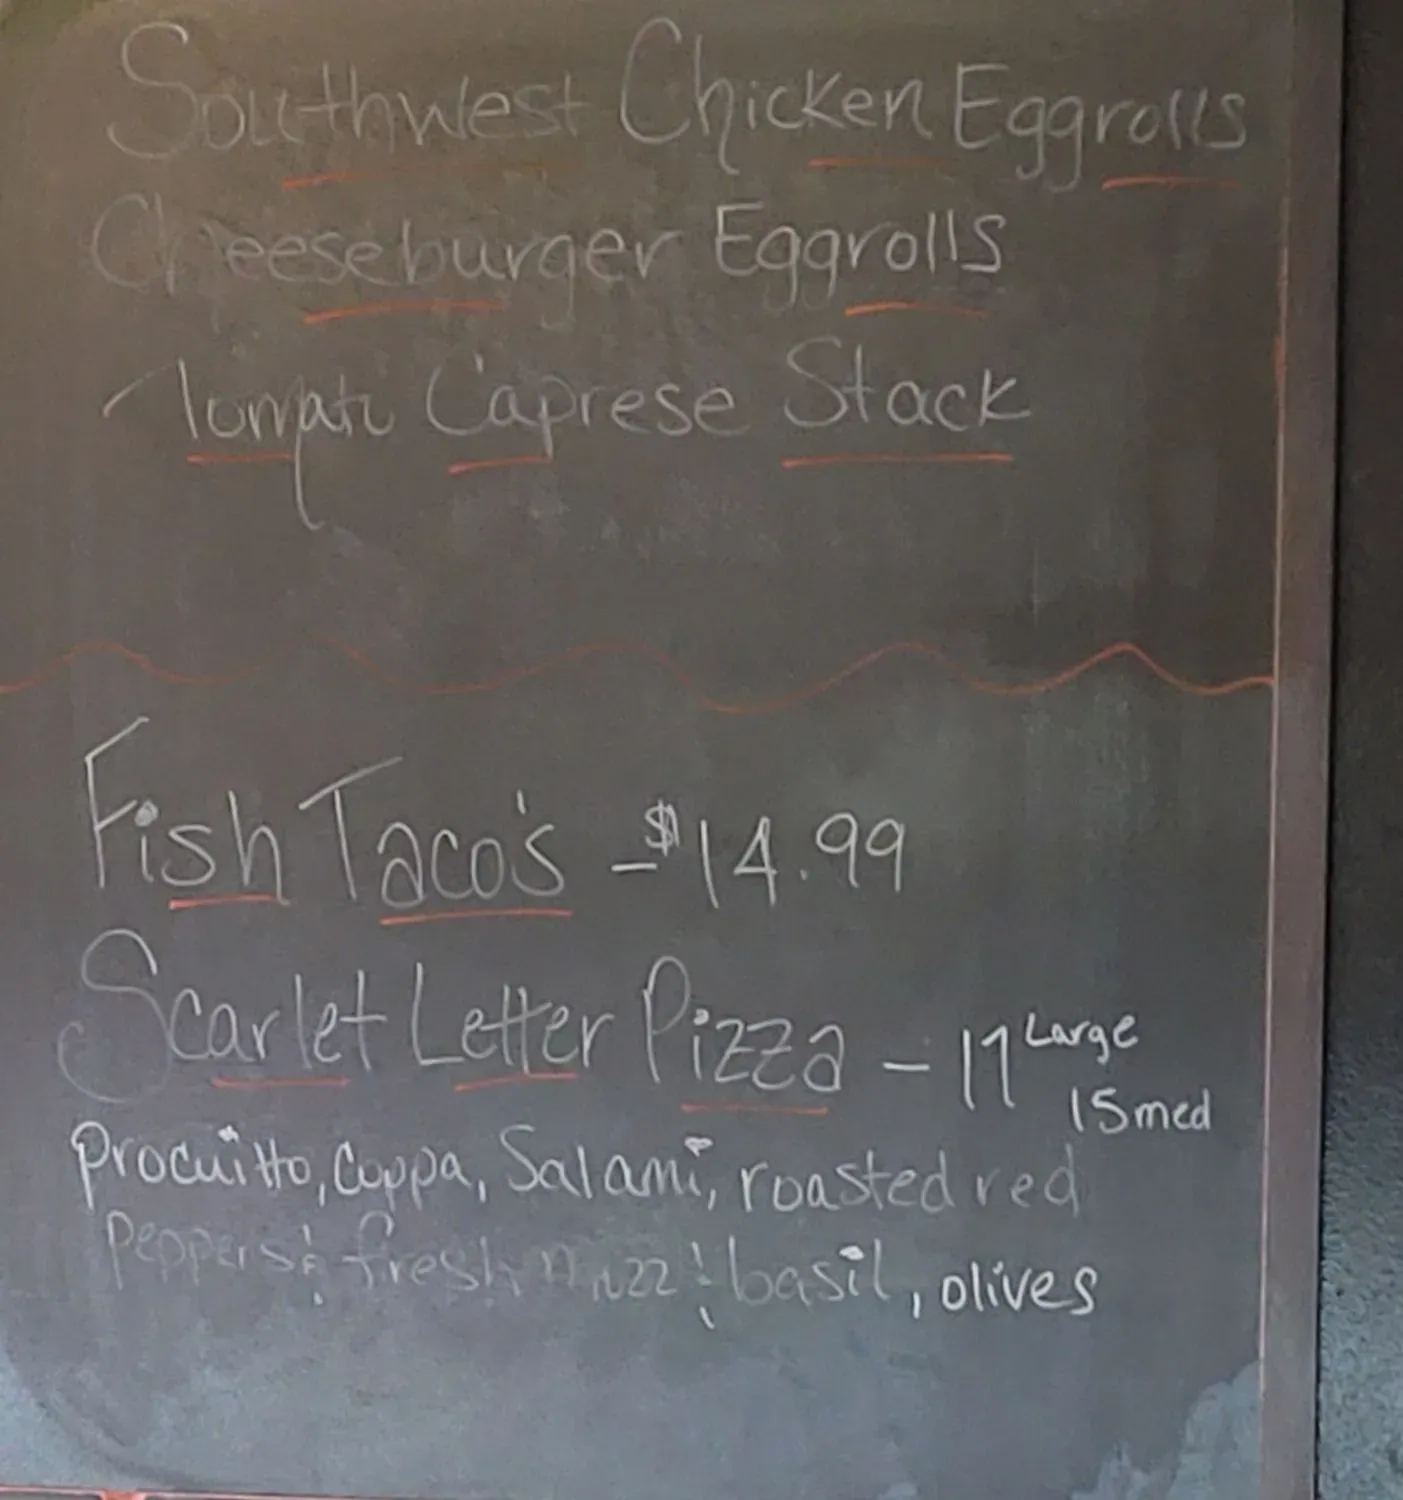 Southwest Chicken Eggrolls
Cheeseburger Eggrolls
Tomato Caprese Stack
Fish Taco's - $14.99
Scarlet Letter Pizza - 17 Large
15 med
Procuitto, Coppa, Salami, roasted red
Peppers, fresh mozz, basil, olives